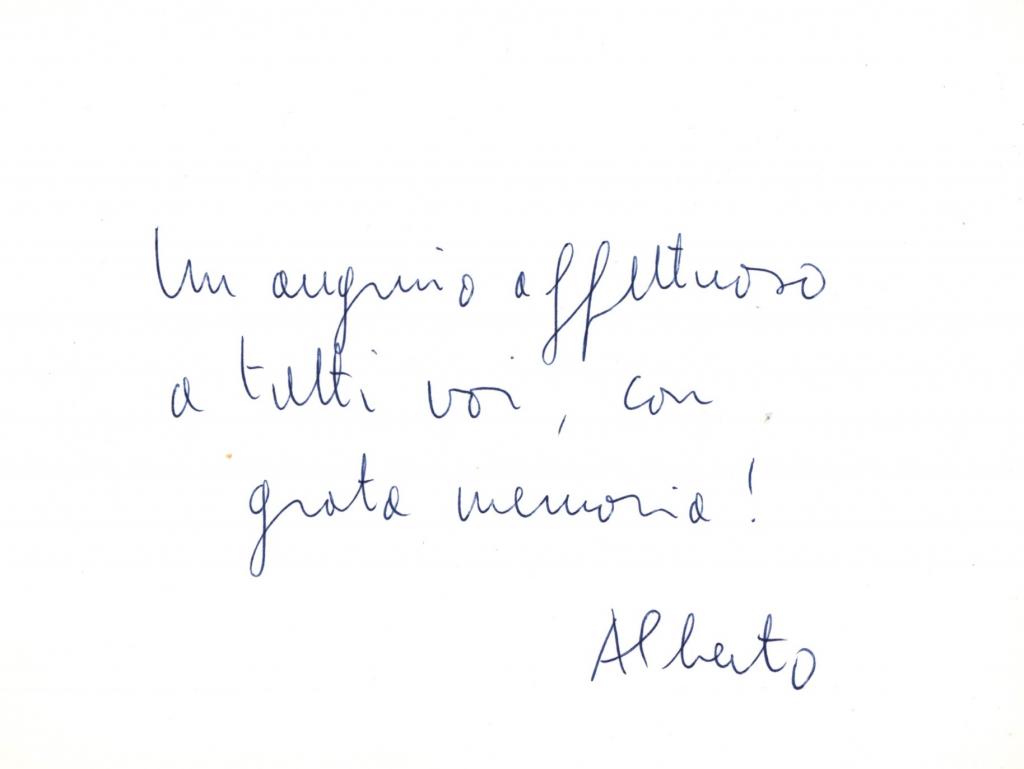 Un augurio affettuoso
a tutti voi, con
grata memoria!
Alberto